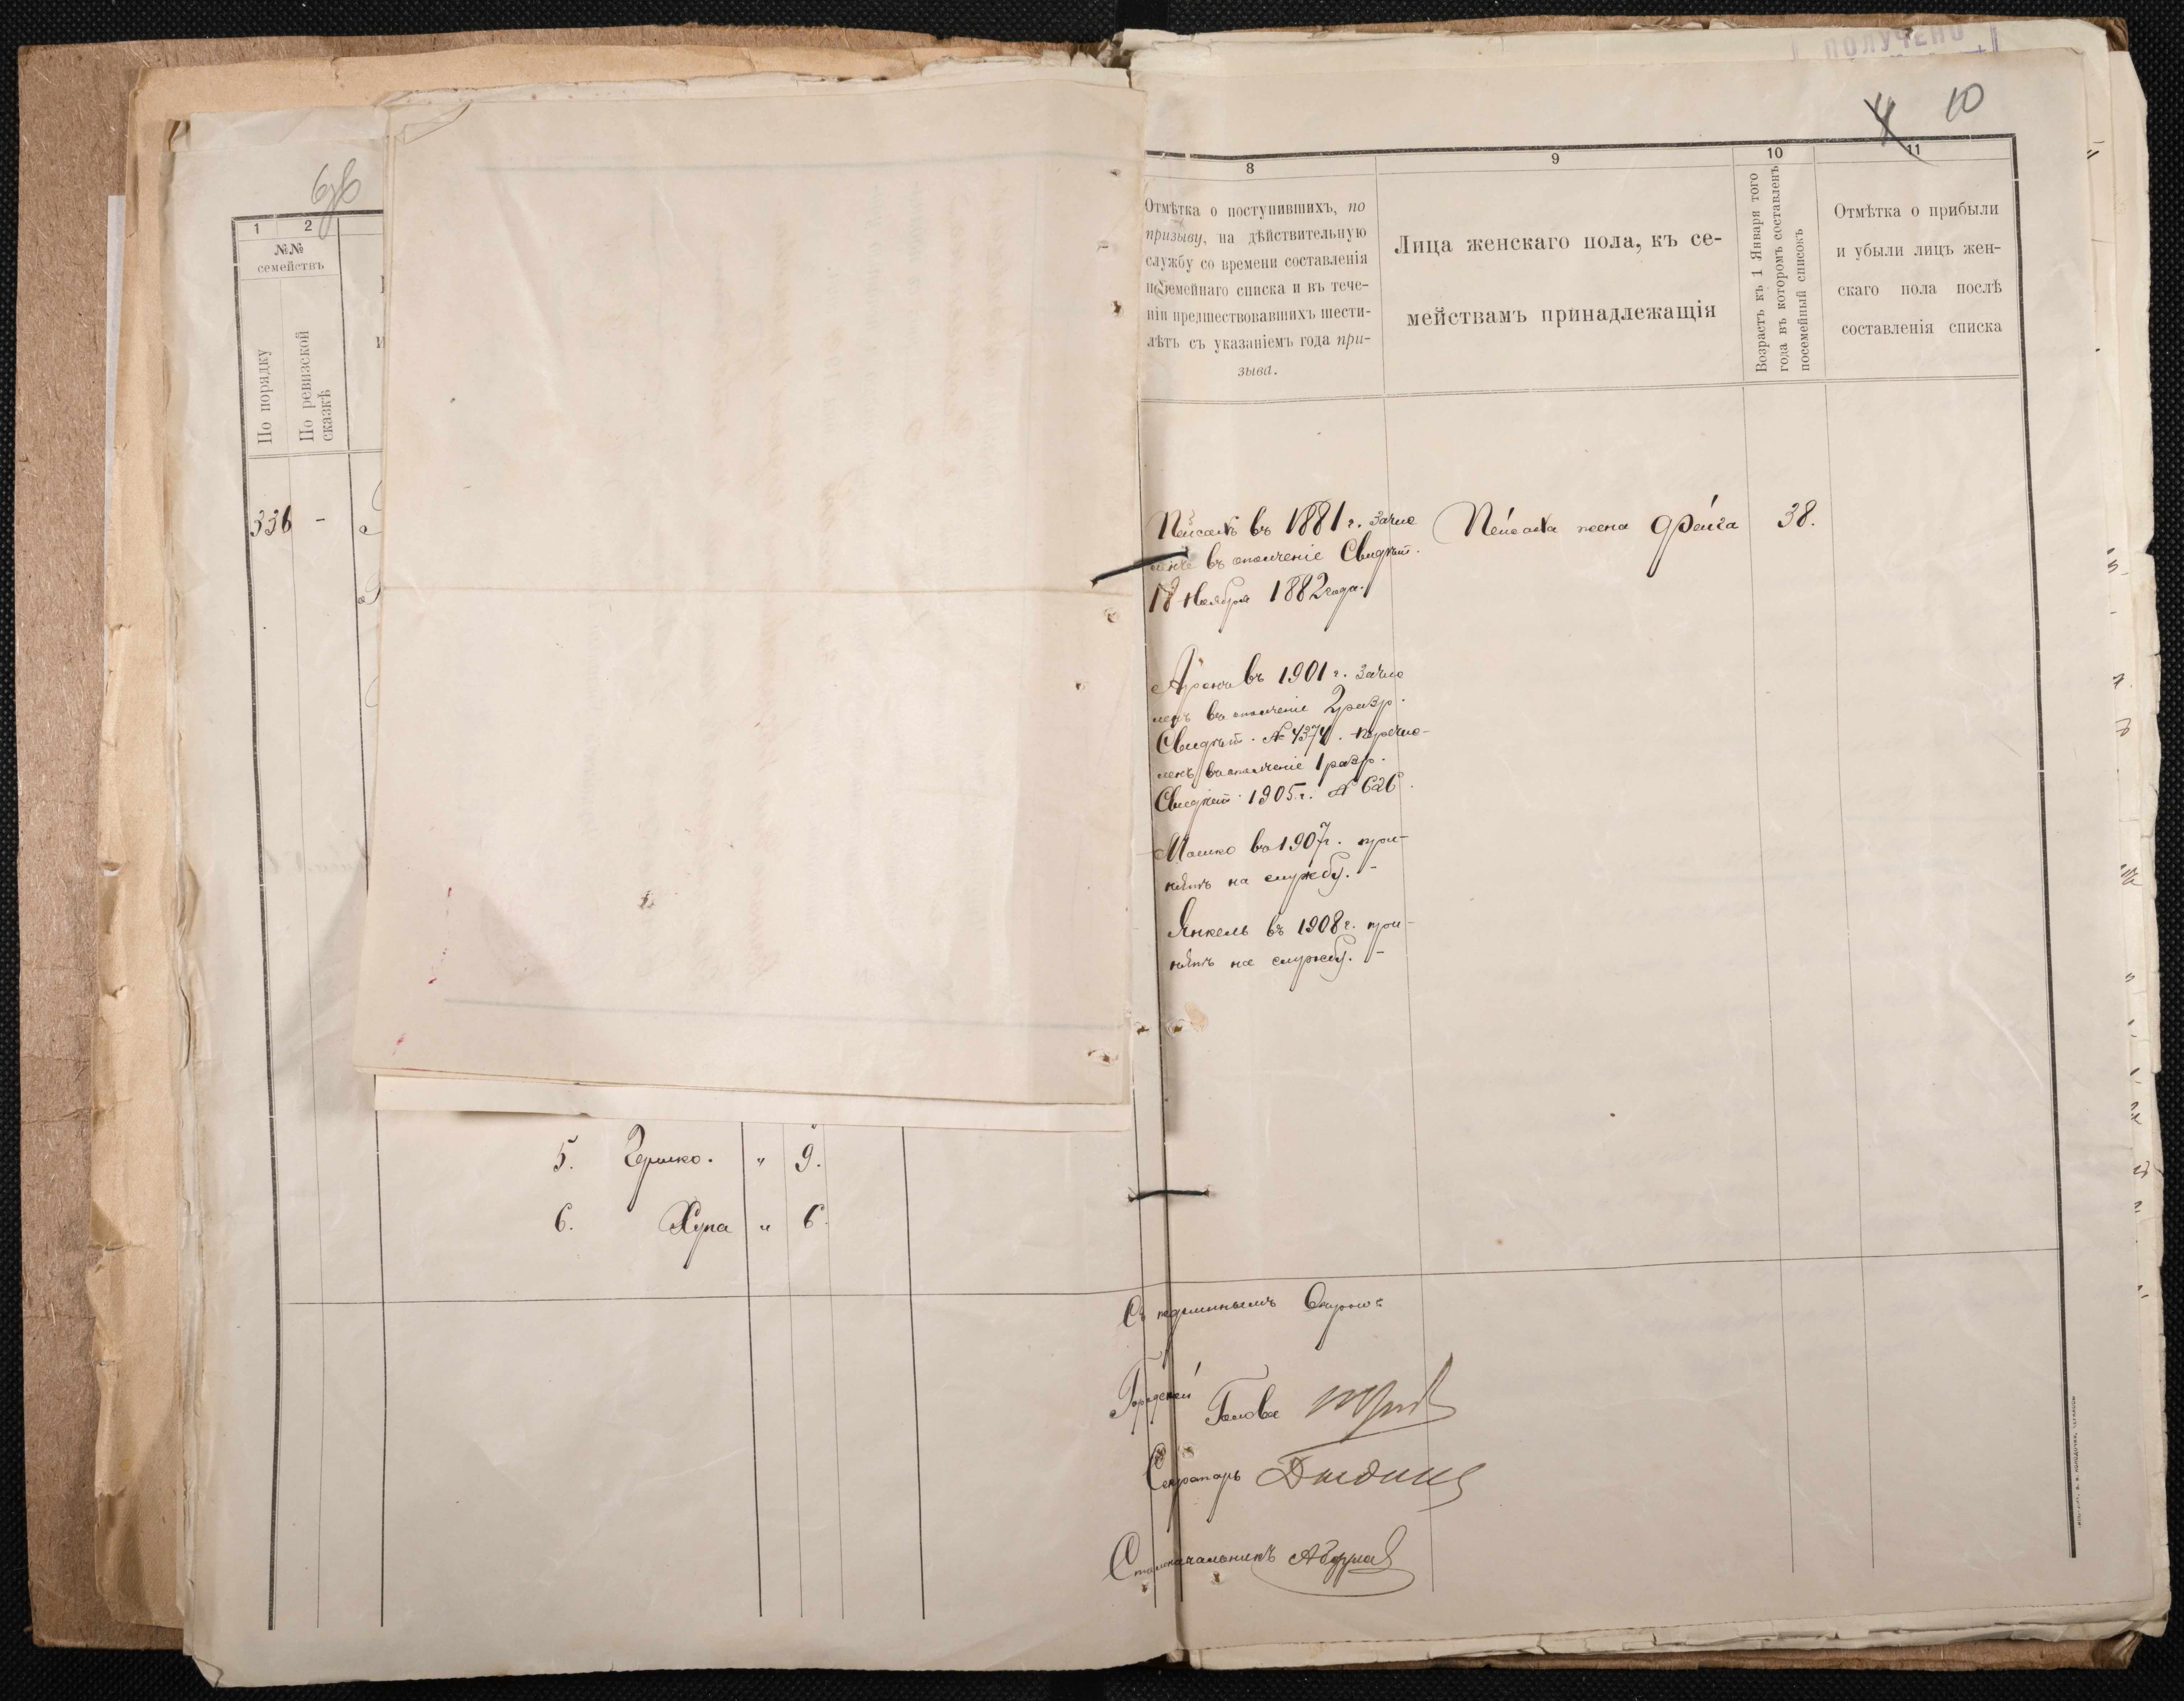 ПОЛУЧЕНО
10
1
2
№№
семействъ
По порядку
По ревизской
сказкѣ
336 -
5. Гершко. " 9.
6. Хуна " 6.
8
Отмѣтка о поступившихъ, по
призыву, на дѣйствительную
службу со времени составленія
посемейнаго списка и въ тече-
ніи предшествовавшихъ шести-
лѣтъ съ указаніемъ года при-
зыва.
9
Лица женскаго пола, къ се-
мействамъ принадлежащія
10
Возрастъ къ 1 Января того
года въ которомъ составленъ
посемейный списокъ
11
Отмѣтка о прибыли
и убыли лицъ жен-
скаго пола послѣ
составленія списка
Пейсахъ въ 1881 г. зачис
ленъ въ ополченіе Свидѣт.
18 Ноября 1882 года.
Аронъ въ 1901 г. зачис
ленъ въ ополченіе 2 разр.
Свидѣт. № 4374. перечис-
ленъ въ ополченіе 1 разр.
Свидѣт. 1905 г. № 626.
Мошко въ 1907 г. при-
нятъ на службу. -
Янкель въ 1908 г. при-
нятъ на службу. -
Пейсаха жена Фейга 38.
Съ подлиннымъ вѣрно:
Городской Голова
Секретарь
Столоначальникъ